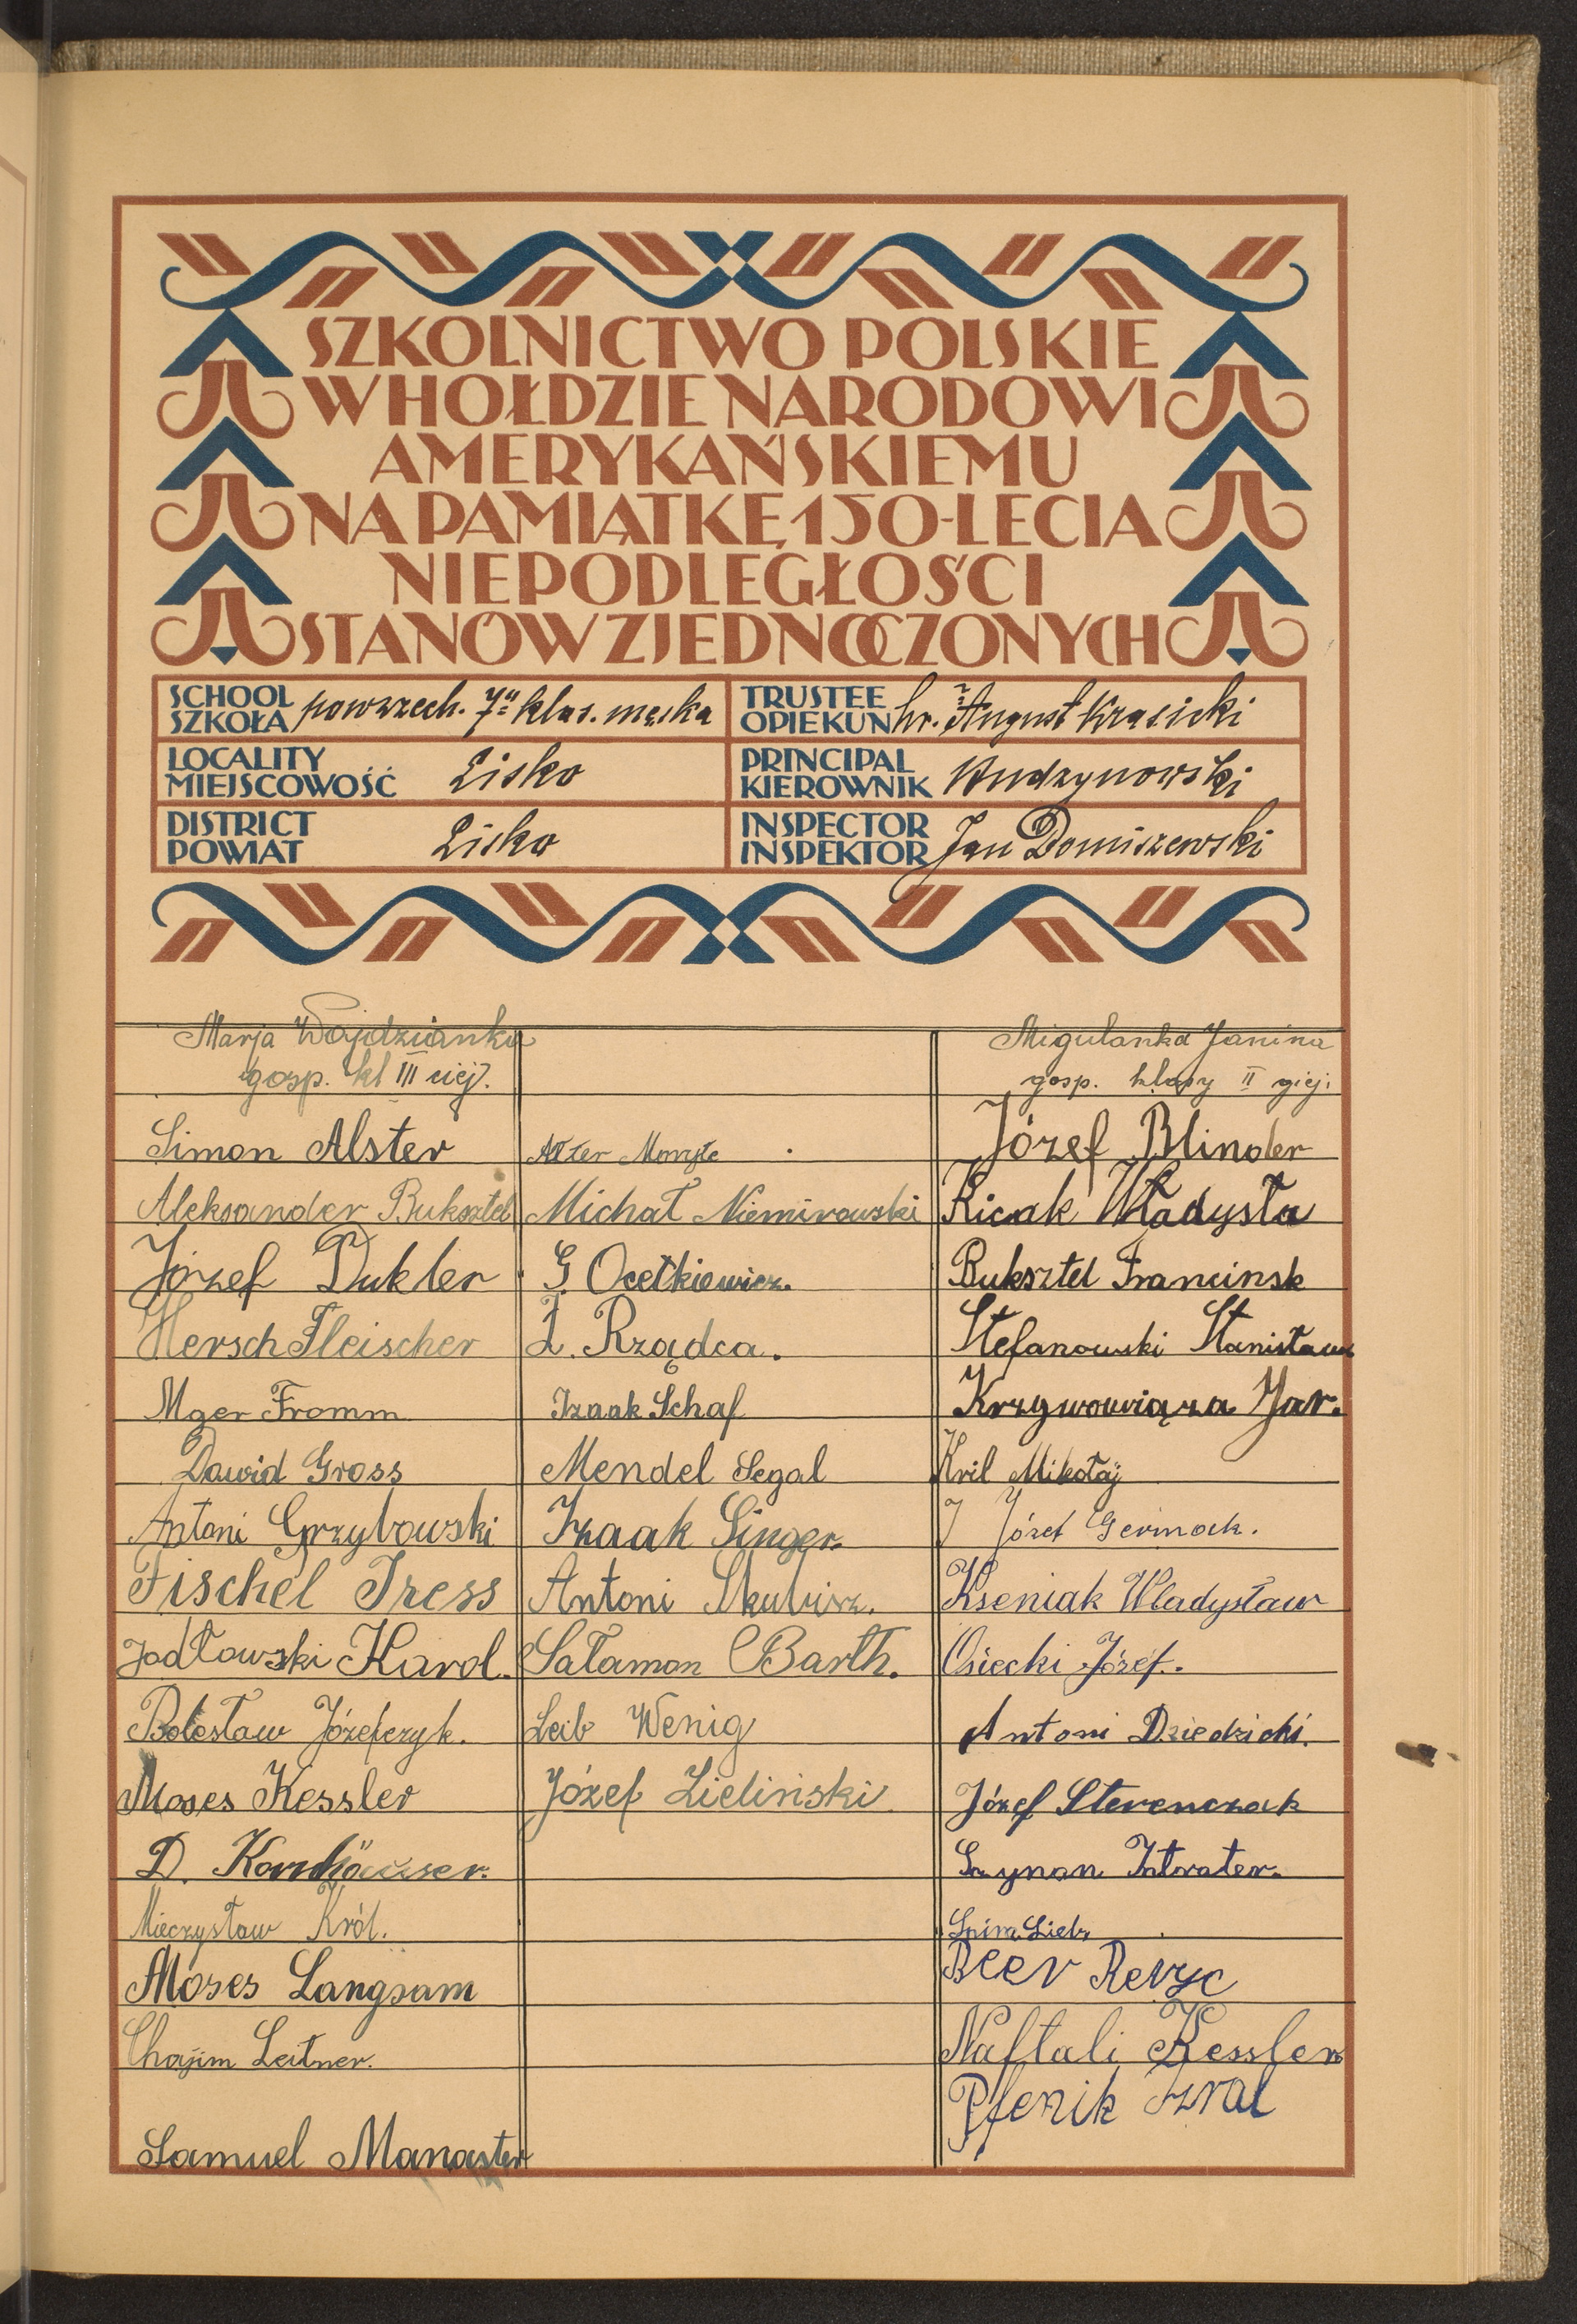 SZKOLNICTWO POLSKIE
W HOŁDZIE NARODOWI
AMERYKAŃSKIEMU
NA PAMIĄTKĘ 150-LECIA
NIEPODLEGŁOŚCI
STANÓW ZJEDNOCZONYCH
SCHOOL
SZKOŁA powszech. 7u klas. męska
TRUSTEE
OPIEKUN hr. August Krasicki
LOCALITY
MIEJSCOWOŚĆ Lisko
PRINCIPAL
KIEROWNIK
DISTRICT
POWIAT Lisko
INSPECTOR
INSPEKTOR Jan Domiszewski
Marja Wojdzianka
gosp. kl III ciej.
Simon Alster
Aleksander Buksztel
Józef Dukler
Hersch Fleischer
Mger Fromm
Dawid Gross
Antoni Grzybowski
Fischel Iress
Jodłowski Karol.
Bolesław Józefczyk.
Moses Kessler
D. Kornhäuser.
Mieczysław Król.
Moses Langsam
Chajim Leitner.
Samuel Manaster
Alter
Michał Niemirowski
G. Ocetkiewicz.
Ł. Rządca.
Izaak Schaf
Mendel Segal
Izaak Singer.
Antoni Skubisz.
Sałamon Barth.
Leib Wenig
Józef Zieliński
Migulanka Janina
gosp. klasy II giej.
Józef Blinder
Ricak Władysła
Buksztel Francinsk
Stefanowski Stanisław
Krzywowiąza Jar.
Kril Mikołaj
J Józef Germack.
Kseniak Władysław
Osiecki Józef.
Antoni Dziedzicki.
Józef Sterenczak
Szymon Intrater.
Beer Revzc
Naftali Kessler
Pfenik Izral